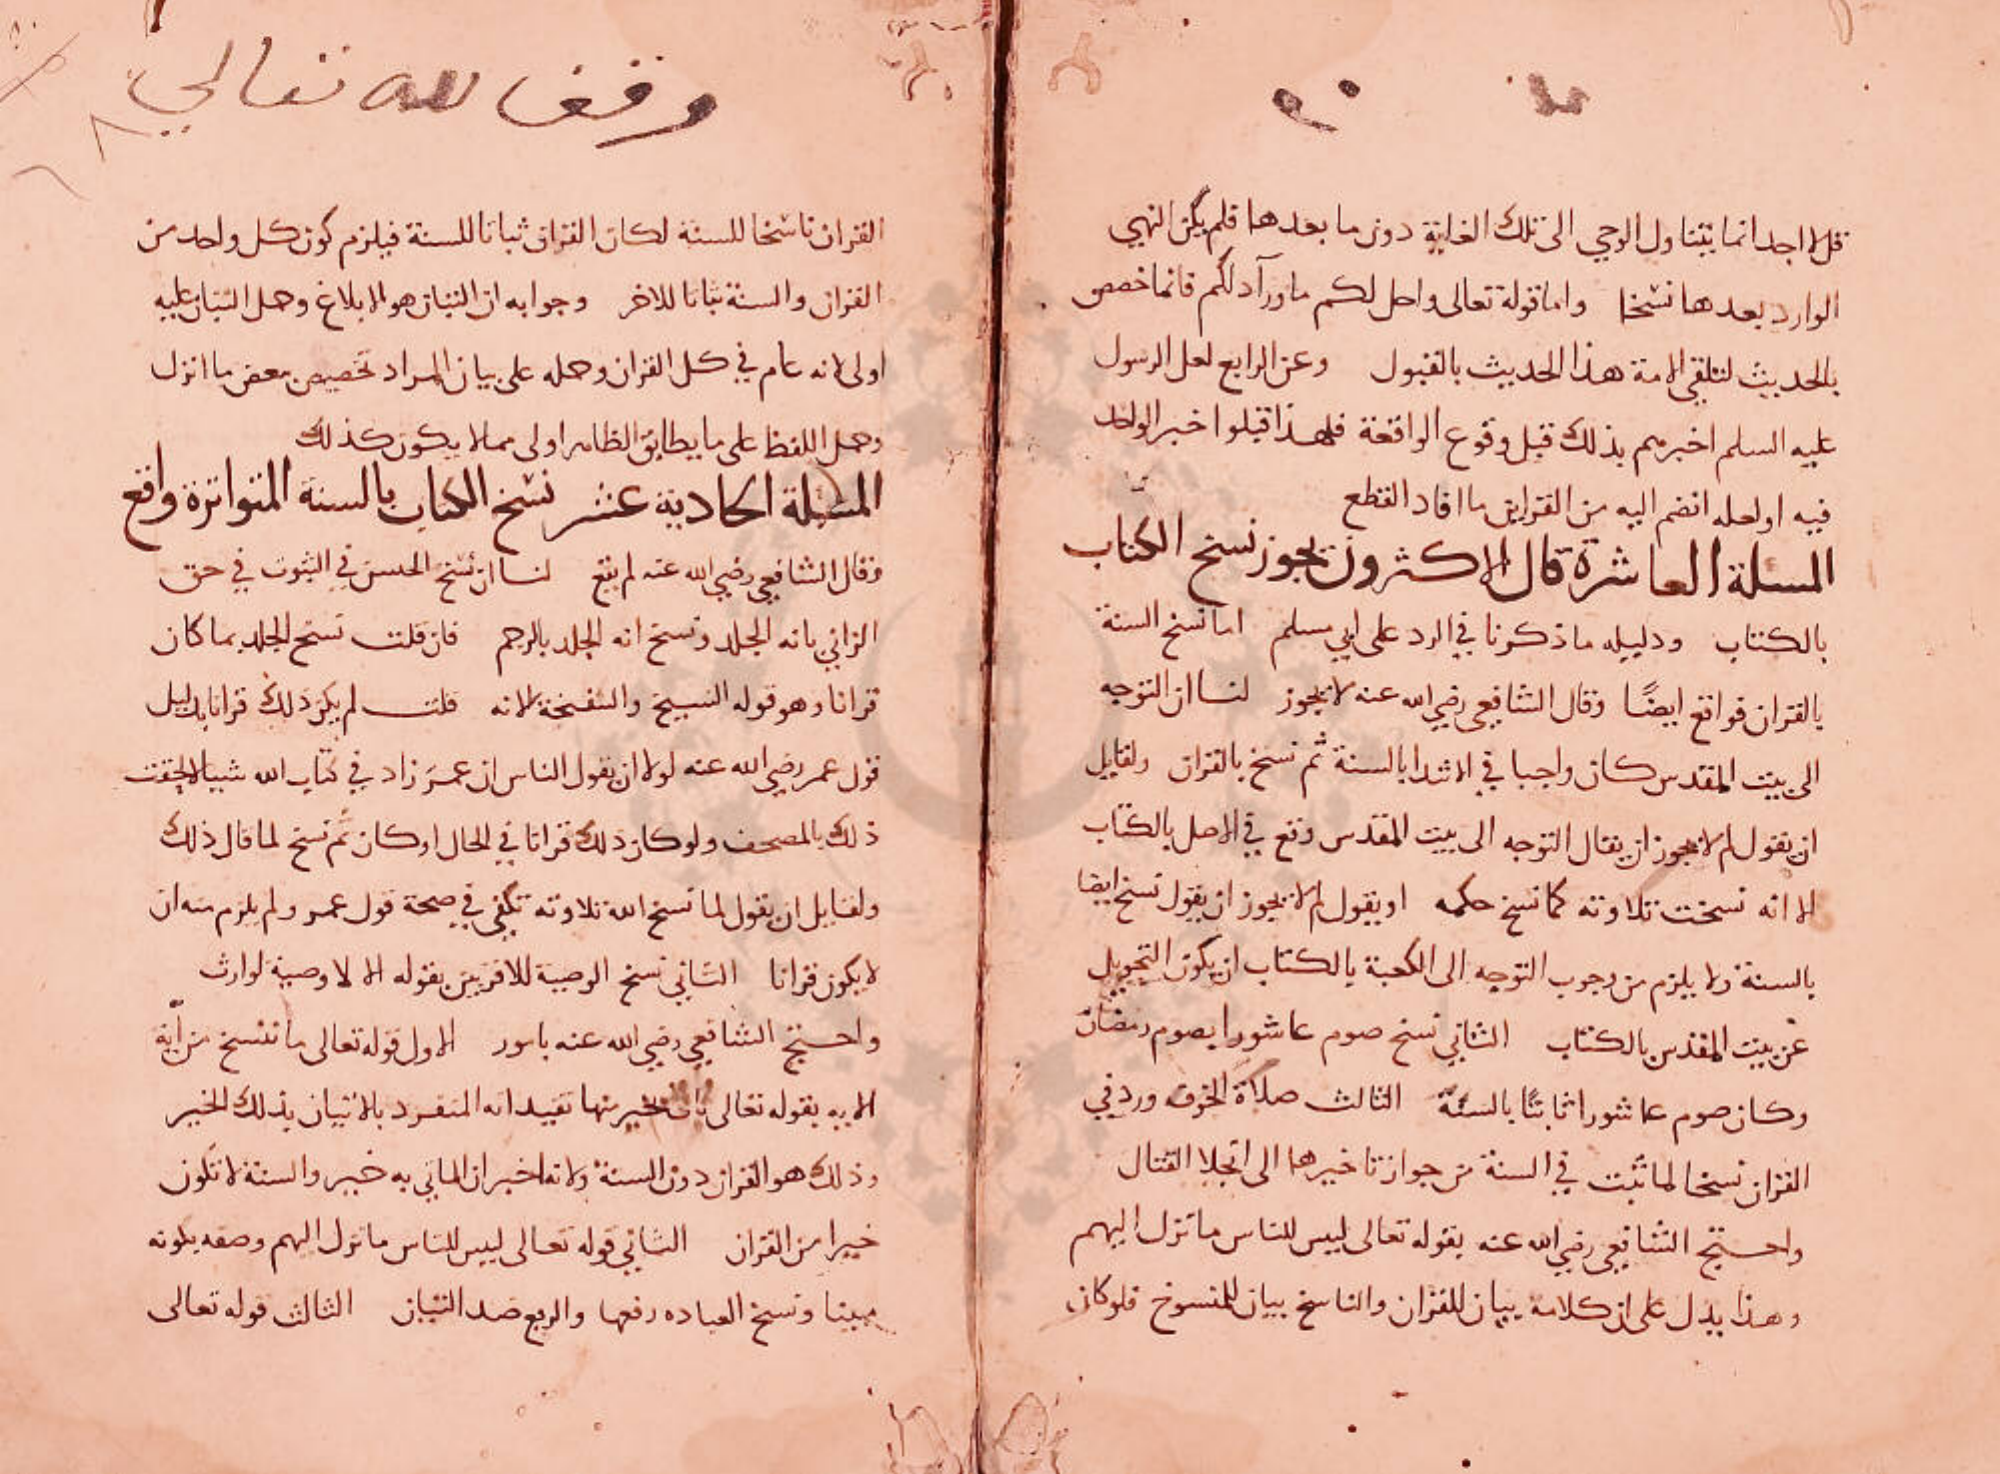 وقف لله
قل لا اجد انما يتناول الوحي الى تلك الغاية دون ما بعدها فلم يكن النهي
الوارد بعدها نسخا واما قوله تعالى واحل لكم ما ورآ دلكم فانما خصص
بالحديث لتلقي الامة هذا الحديث بالقبول وعن الرابع لعل الرسول
عليه السلم اخبرهم بذلك قبل وقوع الواقعة فلهذا قبلوا خبر الواحد
فيه او لعله انضم اليه من القراين ما افاد القطع
المسلة العاشرة قال الاكثرون يجوز نسخ الكتاب
بالكتاب ودليله ما ذكرنا في الرد على ابي مسلم اما نسخ السنة
بالقران فواقع ايضًا وقال الشافعي رضي الله عنه لا يجوز لنا ان التوجه
الى بيت المقدس كان واجبا في الابتدا بالسنة ثم نسخ بالقران ولقايل
ان يقول لم لا يجوز ان يقال التوجه الى بيت المقدس وقع في الاصل بالكتاب
الا انه نسخت تلاوته كما نسخ حكمه او يقول لم لا يجوز ان يقول نسخ ايضا
بالسنة ولا يلزم من وجوب التوجه الى الكعبة بالكتاب ان يكون التحويل
عن بيت المقدس بالكتاب الثاني نسخ صوم عاشورا بصوم رمضان
وكان صوم عاشورا ثابتًا بالسنة الثالث صلاة الخوف ورد في
القران نسخا لما ثبت في السنة من جواز تاخيرها الى انجلا القتال
واحتج الشافعي رضي الله عنه بقوله تعالى ليبين للناس ما نزل اليهم
وهذا يدل على ان كلامه بيان للقران والناسخ بيان للمنسوخ فلو كان
وقف لله تعالى
القران ناسخا للسنة لكان القران بيانا للسنة فيلزم كون كل واحد من
القران والسنة بيانا للاخر وجوابه ان البيان هو الابلاغ وحمل البيان عليه
اولى لانه عام في كل القران وحمله على بيان المراد تخصيص ببعض ما انزل
وحمل اللفظ على ما يطابق الظاهر اولى مما لا يكون كذلك
المسلة الحادية عشر نسخ الكتاب بالسنة المتواترة واقع
وقال الشافعي رضي الله عنه لم يقع لنا ان نسخ الحبس في البيوت في حق
الزاني باية الجلد ونسخ اية الجلد بالرجم فان قلت نسخ الجلد بما كان
قرانا وهو قوله الشيخ والشيخة لانه قلت لم يكن ذلك قرانا بدليل
قول عمر رضي الله عنه لولا ان يقول الناس ان عمر زاد في كتاب الله شيا لالحقت
ذلك بالمصحف ولو كان ذلك قرانا في الحال او كان ثم نسخ لما قال ذلك
ولقايل ان يقول لما نسخ الله تلاوته تكفي في صحة قول عمر ولم يلزم منه ان
لا يكون قرانا الثاني نسخ الوصية للاقربين بقوله الا لا وصية لوارث
واحتج الشافعي رضي الله عنه بامور الاول قوله تعالى ما ننسخ من آية
الايه بقوله تعالى نات بخير منها تفيد انه المنفرد بالاتيان بذلك الخير
وذلك هو القران دون السنة ولانه اخبر ان الماتي به خير والسنة لا تكون
خيرا من القران الثاني قوله تعالى ليبين للناس ما نزل اليهم وصفه بكونه
مبينا ونسخ العباده رفعها والرفع ضد التبيان الثالث قوله تعالى